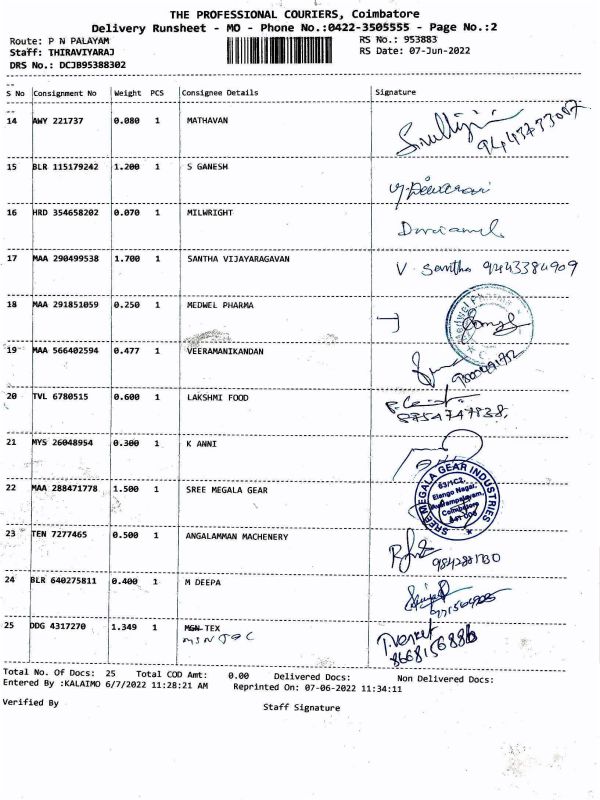 THE PROFESSIONAL COURIERS, Coimbatore
Delivery Runsheet - MO - Phone No.:0422-3505555 - Page No.:2
Route: P N PALAYAM RS No.: 953883
Staff: THIRAVIYARAJ RS Date: 07-Jun-2022
DRS No.: DCJB95388302
S No Consignment No Weight PCS Consignee Details Signature
14 AWY 221737 0.080 1 MATHAVAN
15 BLR 115179242 1.200 1 S GANESH
16 HRD 354658202 0.070 1 MILWRIGHT
17 MAA 290499538 1.700 1 SANTHA VIJAYARAGAVAN V. Santha 9443384909
18 MAA 291851059 0.250 1 MEDWEL PHARMA
19 MAA 566402594 0.477 1 VEERAMANIKANDAN
20 TVL 6780515 0.600 1 LAKSHMI FOOD
8754747838
21 MYS 26048954 0.300 1 K ANNI
22 MAA 288471778 1.500 1 SREE MEGALA GEAR
SREE MEGALA GEAR INDUSTRIES
63/1C2,
Elango Nagar,
Avarampalayam,
Coimbatore
641 006
23 TEN 7277465 0.500 1 ANGALAMMAN MACHENERY
24 BLR 640275811 0.400 1 M DEEPA
25 DDG 4317270 1.349 1 MGN TEX
T. Venket
8668156886
Total No. Of Docs: 25 Total COD Amt: 0.00 Delivered Docs: Non Delivered Docs:
Entered By :KALAIMO 6/7/2022 11:28:21 AM Reprinted On: 07-06-2022 11:34:11
Verified By Staff Signature